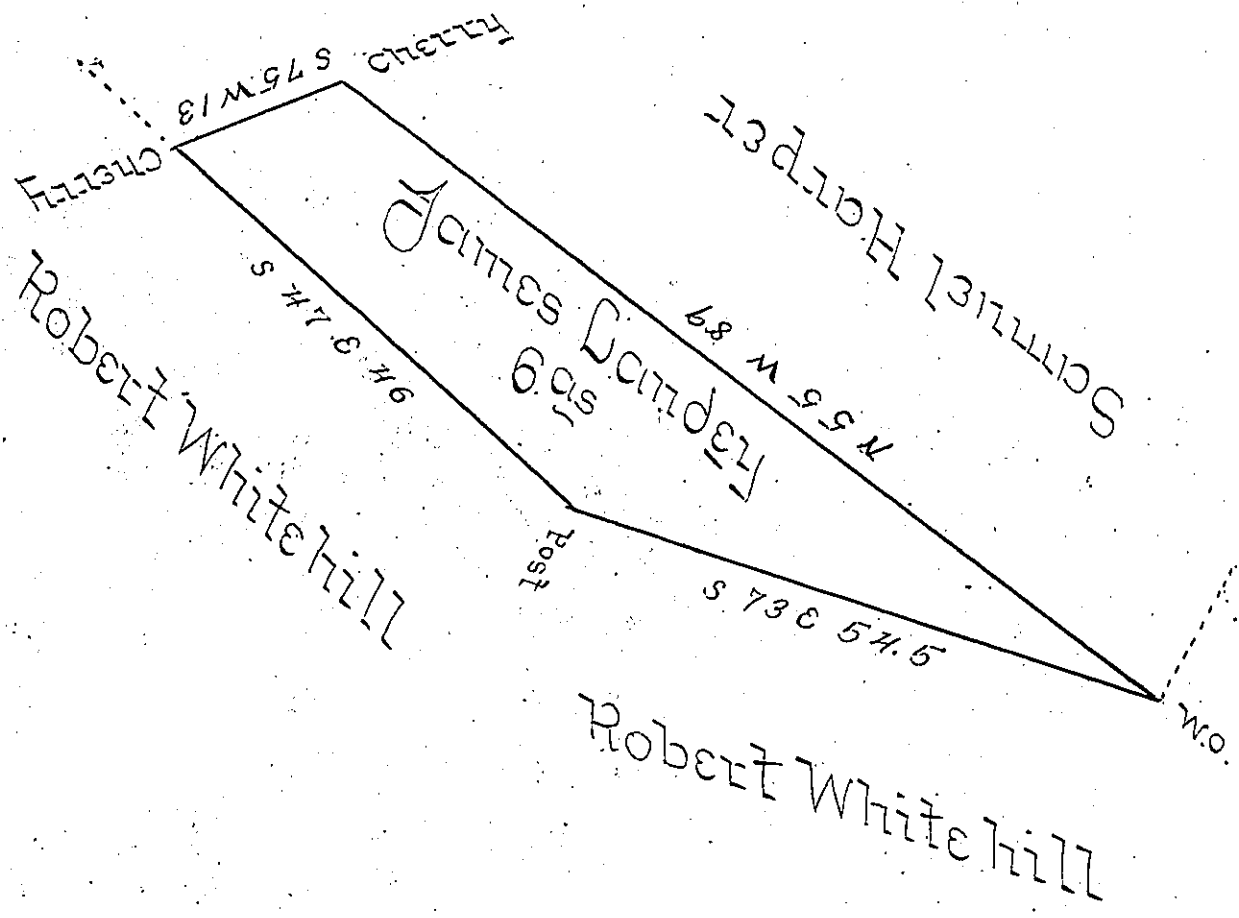 S 75 W 13
cherry
cherry
Samuel Harper
James
6 as
N 55 W 89
S 47 E 46
Robert Whitehill
post
S 73 E 54.5
W.O.
Robert Whitehill